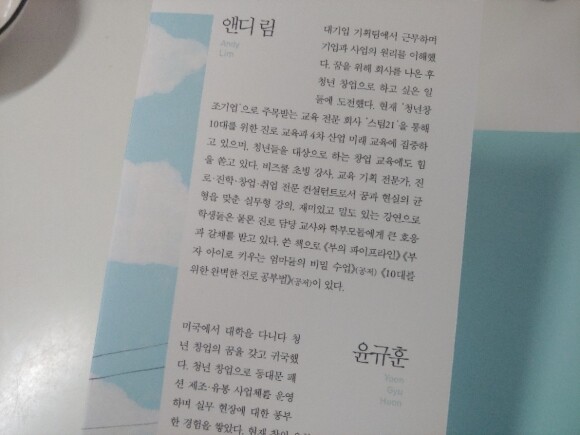 앤디 림
Andy
Lim
대기업 기획팀에서 근무하며
기업과 사업의 원리를 이해했
다. 꿈을 위해 회사를 나온 후
청년 창업으로 하고 싶은 일
들에 도전했다. 현재 '청년창
조기업'으로 주목받는 교육 전문 회사 '스팀21'을 통해
10대를 위한 진로 교육과 4차 산업 미래 교육에 집중하
고 있으며, 청년들을 대상으로 하는 창업 교육에도 힘
을 쏟고 있다. 비즈쿨 초빙 강사, 교육 기획 전문가, 진
로·진학·창업·취업 전문 컨설턴트로서 꿈과 현실의 균
형을 맞춘 실무형 강의, 재미있고 밀도 있는 강연으로
학생들은 물론 진로 담당 교사와 학부모들에게 큰 호응
과 갈채를 받고 있다. 쓴 책으로 《부의 파이프라인》《부
자 아이로 키우는 엄마들의 비밀 수업》(공저) 《10대를
위한 완벽한 진로 공부법》(공저)이 있다.
윤규훈
Yoon
Gyu
Hoon
미국에서 대학을 다니다 청
년 창업의 꿈을 갖고 귀국했
다. 청년 창업으로 동대문 패
션 제조·유통 사업체를 운영
하며 실무 현장에 대한 풍부
한 경험을 쌓았다. 현재 창의